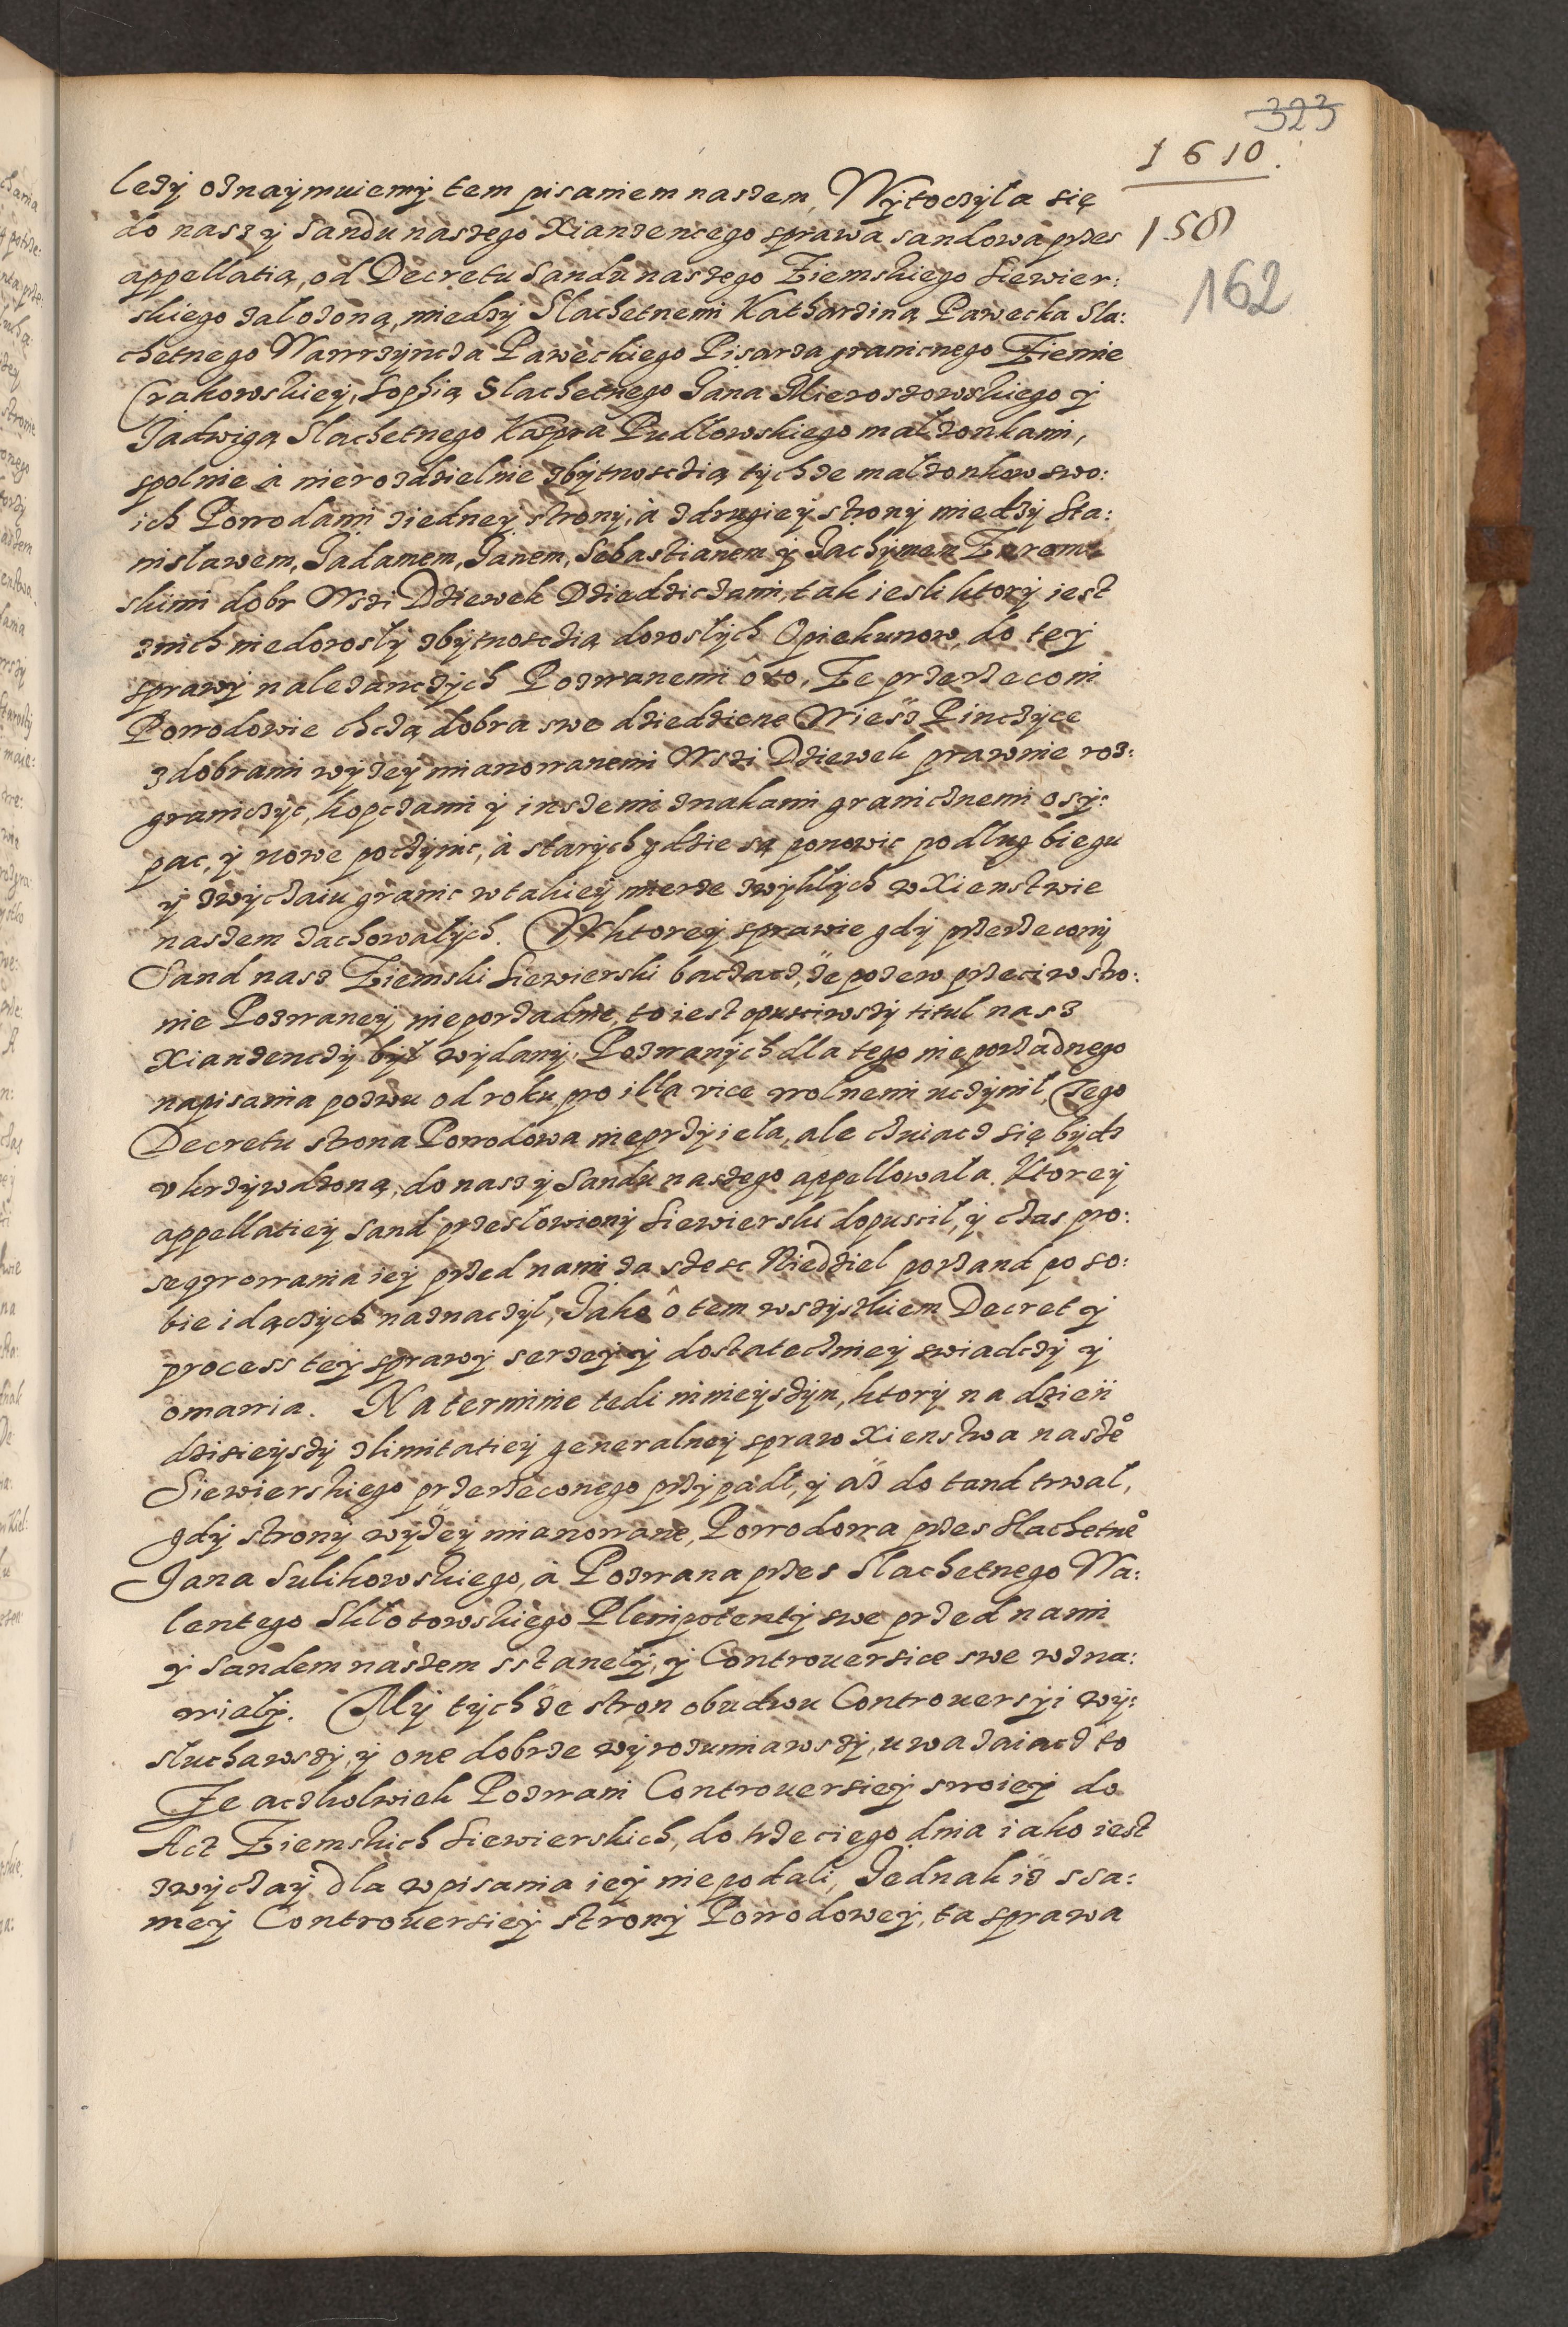 323
1610.
158
162
leży oznaymuiemy tem pisaniem naszem, Wytoczyła się
do nasz y Sandu naszego Xiandencego sprawa sandowa przes
appellatią, od Decretu Sandu naszego Ziemskiego Siewier:
skiego założoną, miedzy Slachetnemi Katharziną Pawecka Sla:
chetnego Wawrzyncza Paweckiego Pisarza granicnego Ziemie
Crakowskiey, Sophią Slachetnego Jana Mieroszowskiego y
Jadwigą Slachetnego Kaspra Pudlowskiego małżonkami,
spolnie à nierozdzielnie zbytnosczią tychże małżonkow swo:
ich Powodami ziedney strony, à zdrugiey strony miedzy Sta:
nisławem, Jadamem, Janem, Sebastianem y Jachymem Zarem:
skimi dobr Wszi Dziewek Dziedziczami, tak iesli ktory iest
znich niedorosły zbytnosczią dorosłych Opiekunow, do tey
sprawy należanczych Pozwanemi ô to, Ze przerzeconi
Powodowie chczą dobra swe dziedzicne Wiesz Pinczyce
zdobrami wyżey mianowanemi Wszi Dziewek prawnie roz:
graniczyc, kopczami y inszemi znakami granicznemi osy:
pac, y nowe poczynic, à starych gdzie są ponowic podług biegu
y zwyczaiu granic w takiey mierze zwykłych w Xienstwie
naszem zachowałych. W ktorey sprawie gdy przerzecony
Sand nasz Ziemski Siewierski baczacz, że pozew przeciw stro:
nie Pozwaney nieporzadnie, to iest opusciwszy titul nasz
Xiandenczy był wydany, Pozwanych dla tego nieporzadnego
napisania pozwu od roku pro illa vice wolnemi uczynił, Tego
Decretu strona Powodowa nieprzyieła, ale czuiacz się bydz
vkrzywdzoną, do nasz y Sandu naszego appellowała. Ktorey
appellatiey Sand przesłowiony Siewierski dopuscił, y czas pro:
seqwowania iey przed nami za szesc Niedziel porzand po so:
bie idączych naznaczył, Jako ô tem wszyskiem Decret y
process tey sprawy serzey y dostateczniey swiadczy y
omawia. Na terminie tedi ninieyszym, ktory na dzień
dzisieyszy zlimitatiey generalney spraw Xienstwa nasze°
Siewierskiego przerzeconego przypadł, y aż do tand trwał,
gdy strony wyżey mianowane, Powodowa przes Slachetne°
Jana Sulikowskiego, à Pozwana przes Slachetnego Wa:
lentego Skłotowskiego Plenipotenty swe przed nami
y Sandem naszem sstanęły, y Controuersice swe wzna:
wiały. My tychże stron obudwu Controuersyi wy:
słuchawszy, y one dobrze wyrozumiawszy, uwazaiacz to
Ze aczkolwiek Pozwani Controuersiey swoiey do
Act Ziemskich Siewierskich, do trzeciego dnia iako iest
zwyczay dla wpisania iey niepodali, Jednak iż ssa:
mey Controuersiey strony Powodowey, ta sprawa